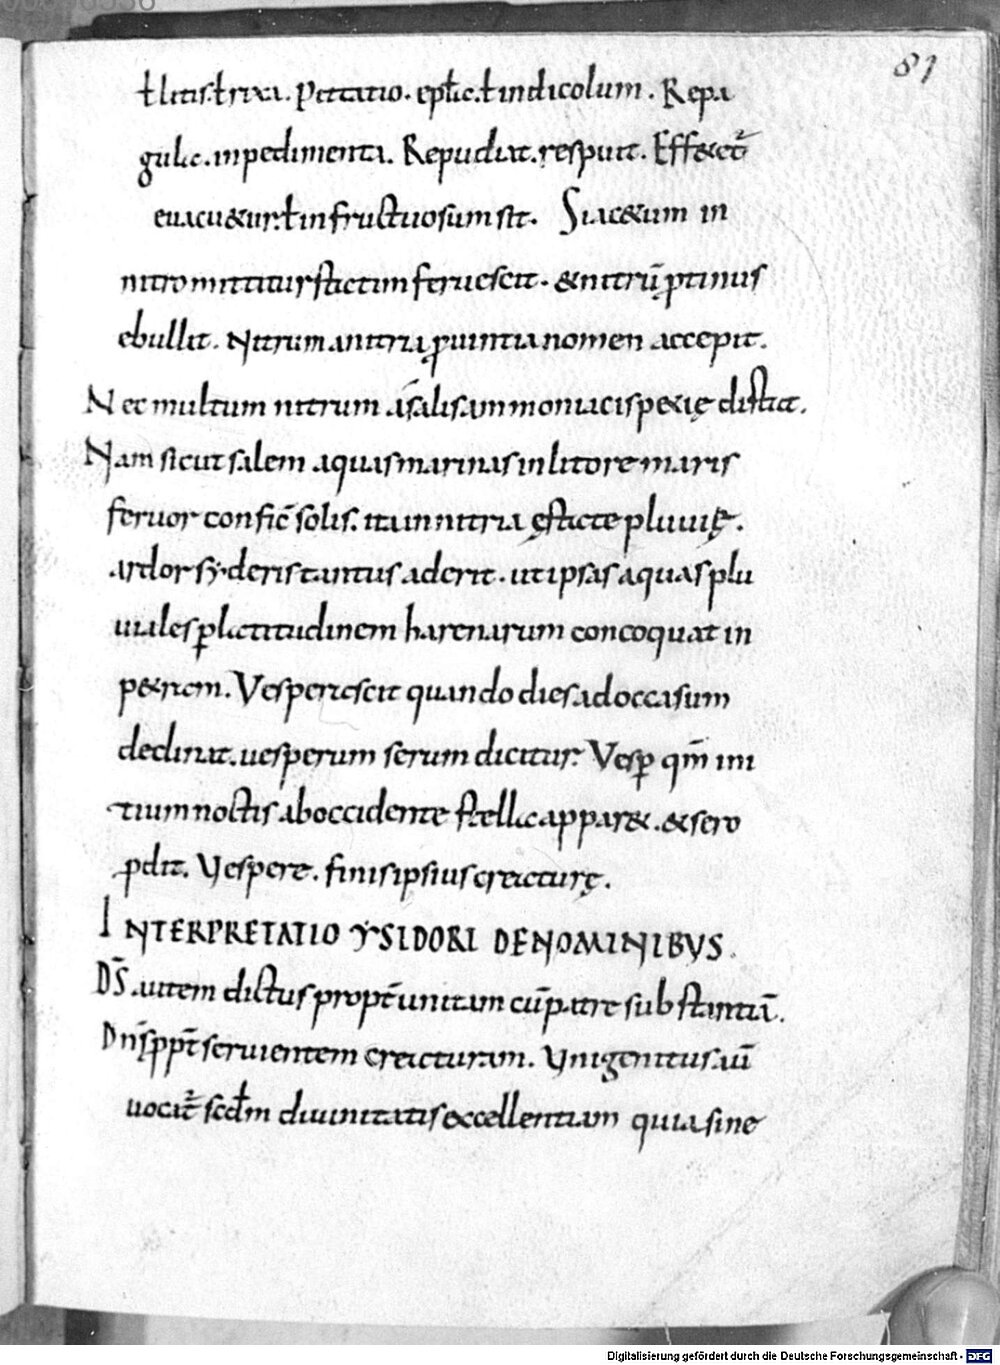 81
ł litis. ł rixa. Pittatio. epła. ł indicolum. Repa
gula. inpedimenta. Repudiat. respuit. Effect̄
euacu&ur. ł infructuosum sit. Si ac&um in
nitro mittitur statim feruescit. & nitrū ꝓtinus
ebullit. Nitrum a nitria ꝓuintia nomen accepit.
Nec multum nitrum a salis ammoniaci specię distat.
Nam sicut salem aquas marinas in litore maris
feruor confic̄ solis. ita in nitria ęstate pluuię.
ardor syderis tantus aderit. ut ipsas aquas plu
uiales ꝑ latitudinem harenarum concoquat in
p&rem. Vesperescit quando dies ad occasum
declinat. uesperum serum dicitur. Vesꝑ qm̄ ini
tium noctis ab occidente stella appar&. & sero
ꝓdit. Vespere. finis ipsius creaturę.
INTERPRETATIO YSIDORI DE NOMINIBVS.
DS̄. autem dictus propt̄ unitam cū patre substantiā.
Dn̄s ppt̄ seruientem creaturam. Vnigenitus. uī
uocat̄ scdm̄ diuinitatis excellentiam quia sine
Digitalisierung gefördert durch die Deutsche Forschungsgemeinschaft - DFG